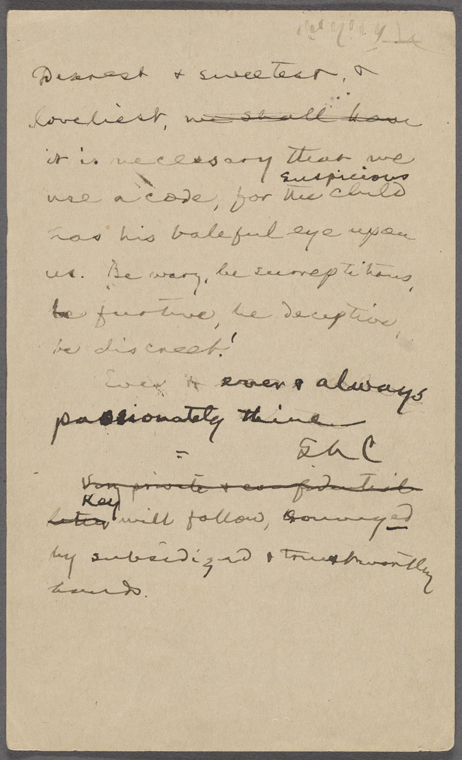 Dearest & sweetest, &
loveliest, we shall have
it is necessary that we
suspicious
use a code, for the child
has his baleful eye upon
us. Be wary, be surreptitious,
be furtive, be deceptive,
be discreet!
Ever & ever & always
passionately thine
=
Very private & confidential
Key
letter will follow, conveyed
by subsidized & trustworthy
hands.